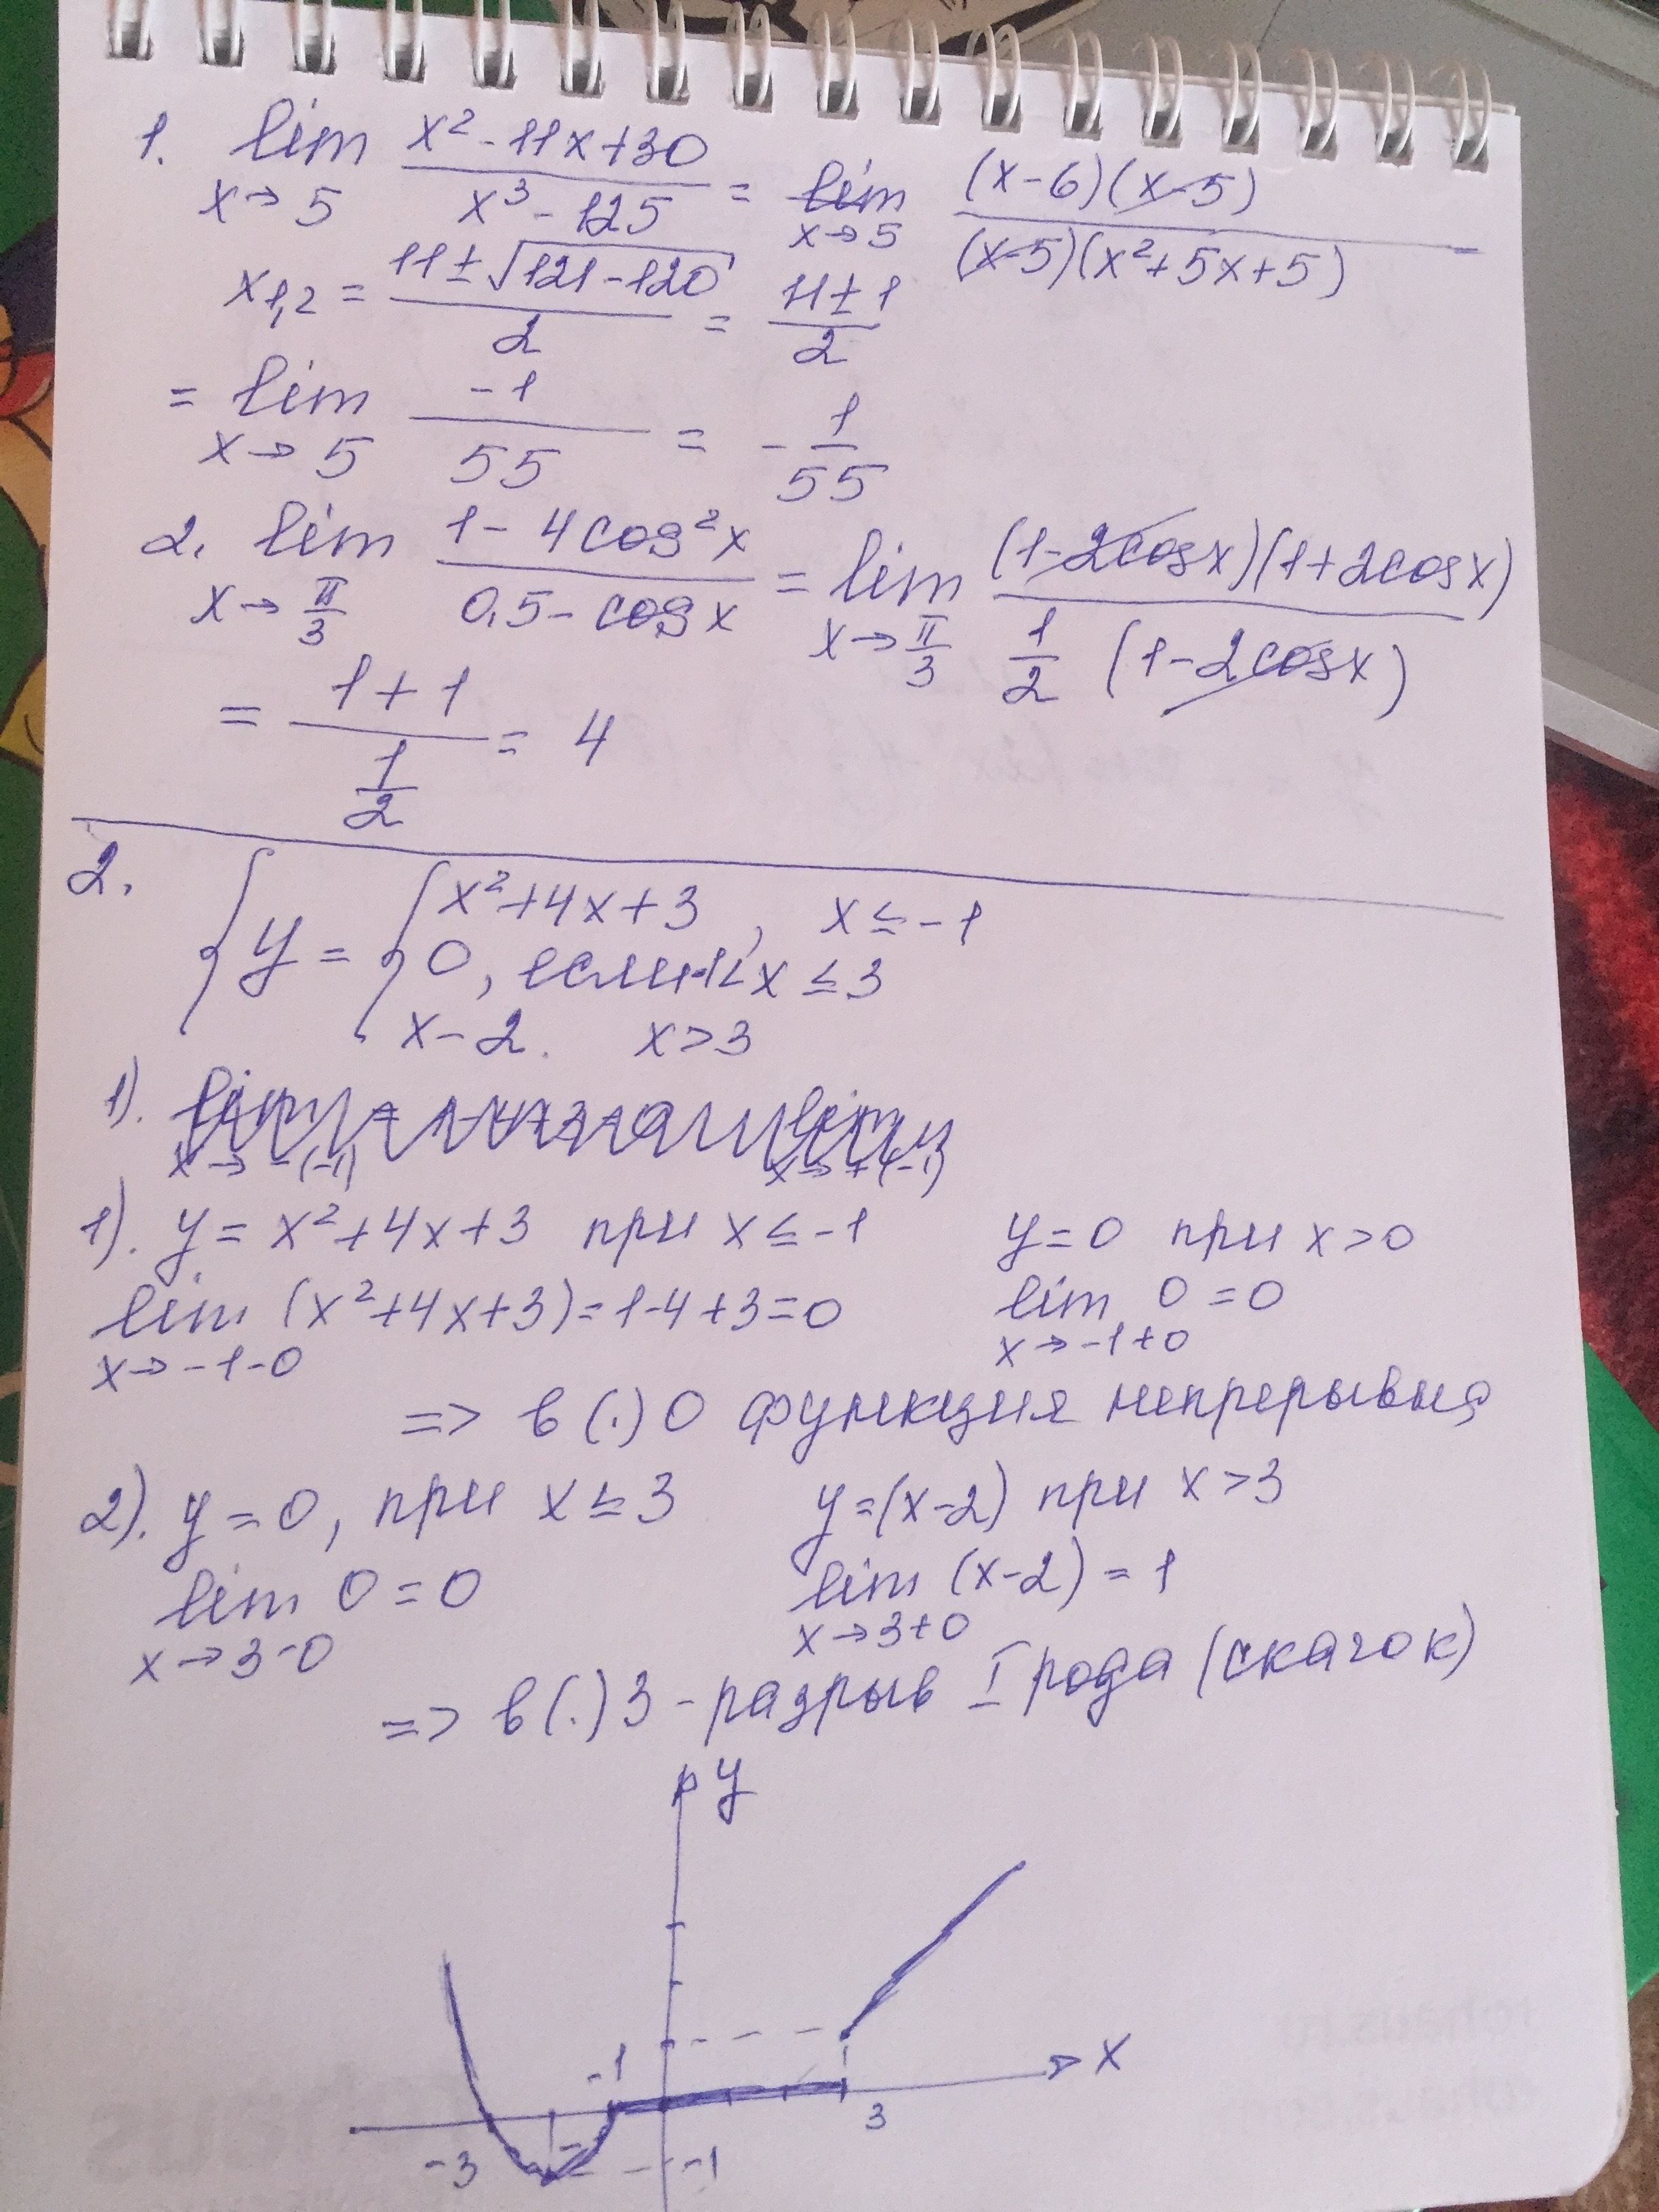 1. lim x→5 (x² - 11x + 30)/(x³ - 125) = lim x→5 (x-6)(x-5)/((x-5)(x²+5x+5)) =
x₁,₂ = (11 ± √(121 - 120))/2 = (11 ± 1)/2
= lim x→5 -1/55 = - 1/55
2. lim x→π/3 (1 - 4cos²x)/(0,5 - cosx) = lim x→π/3 (1-2cosx)(1+2cosx)/(1/2 (1-2cosx))
= (1+1)/(1/2) = 4
2. { y = { x²+4x+3, x ≤ -1
0, если -1< x ≤ 3
x-2. x>3
1).
1). y = x²+4x+3 при x ≤ -1 y=0 при x>0
lim x→-1-0 (x²+4x+3) = 1-4+3=0 lim x→-1+0 0 = 0
=> в (.) 0 функция непрерывна
2). y = 0, при x ≤ 3 y=(x-2) при x>3
lim x→3-0 0 = 0 lim x→3+0 (x-2) = 1
=> в (.) 3 - разрыв I рода (скачок)
y
x
-1
3
-3
-1